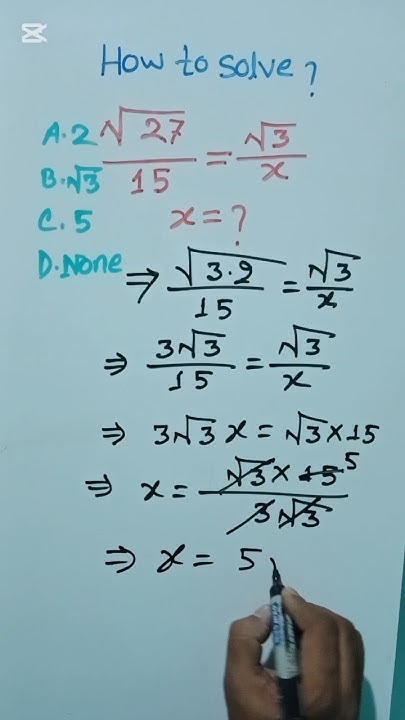 How to solve?
A. 2
B. √3
C. 5
D. None
√27/15 = √3/x
x = ?
⇒ √3·9/15 = √3/x
⇒ 3√3/15 = √3/x
⇒ 3√3 x = √3 × 15
⇒ x = √3 × 15 5/3√3
⇒ x = 5